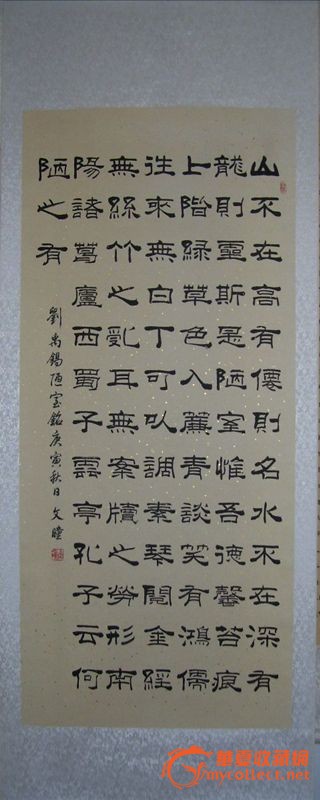 山不在高有僊則名水不在深有
龍則靈斯是陋室惟吾德馨苔痕
上階綠草色入簾青談笑有鴻儒
往來無白丁可以調素琴閱金經
無絲竹之亂耳無案牘之勞形南
陽諸葛廬西蜀子雲亭孔子云何
陋之有
劉禹錫陋室銘庚寅秋日文
華夏收藏網
mycollect.net